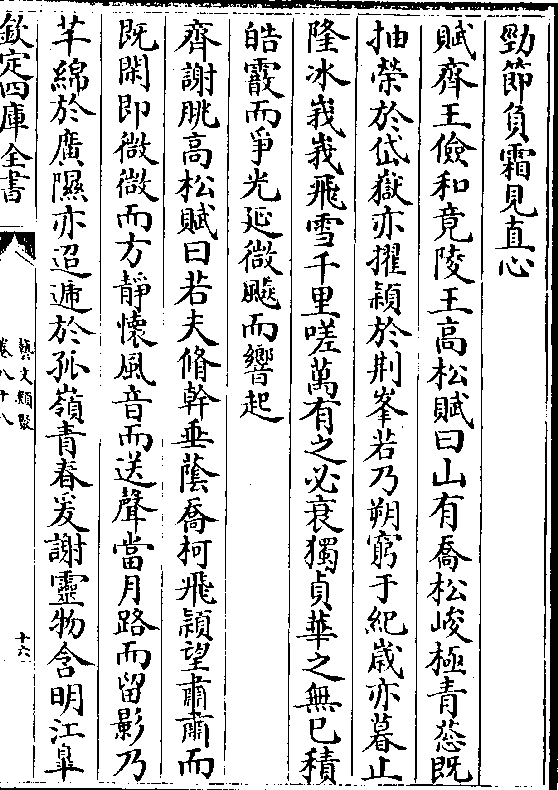 勁節負霜見直心
賦齊王儉和竟陵王高松賦曰山有喬松峻極青葱既
抽榮於岱嶽亦擢頴於荆峯若乃朔窮于紀嵗亦暮止
隆冰峩峩飛雪千里嗟萬有之必衰獨貞華之無已積
皓霰而爭光延微飈而響起
齊謝朓高松賦曰若夫脩幹垂蔭喬柯飛頴望肅肅而
既閑即微微而方靜懷風音而送聲當月路而留影乃
芊綿於廣隰亦迢遞於孤嶺青春爰謝靈物含明江臯
欽定四庫全書
藝文類聚
卷八十八
十六